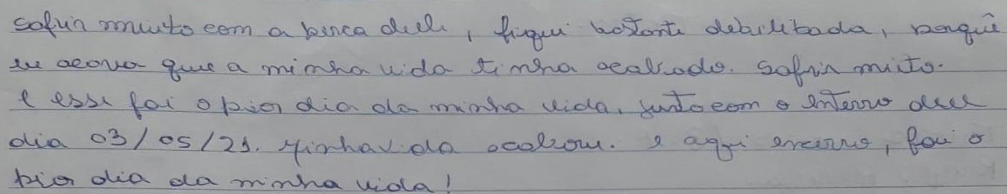 sofrir muito com a perca dele, fiquei bastante debilitada, porquê
eu acava que a minha vida tinha acabado. Sofrir muito.
e esse foi o pior dia da minha vida, junto com o enterro dele
dia 03/05/21. Minha vida acabou. e aqui encerro, foi o
pior dia da minha vida!